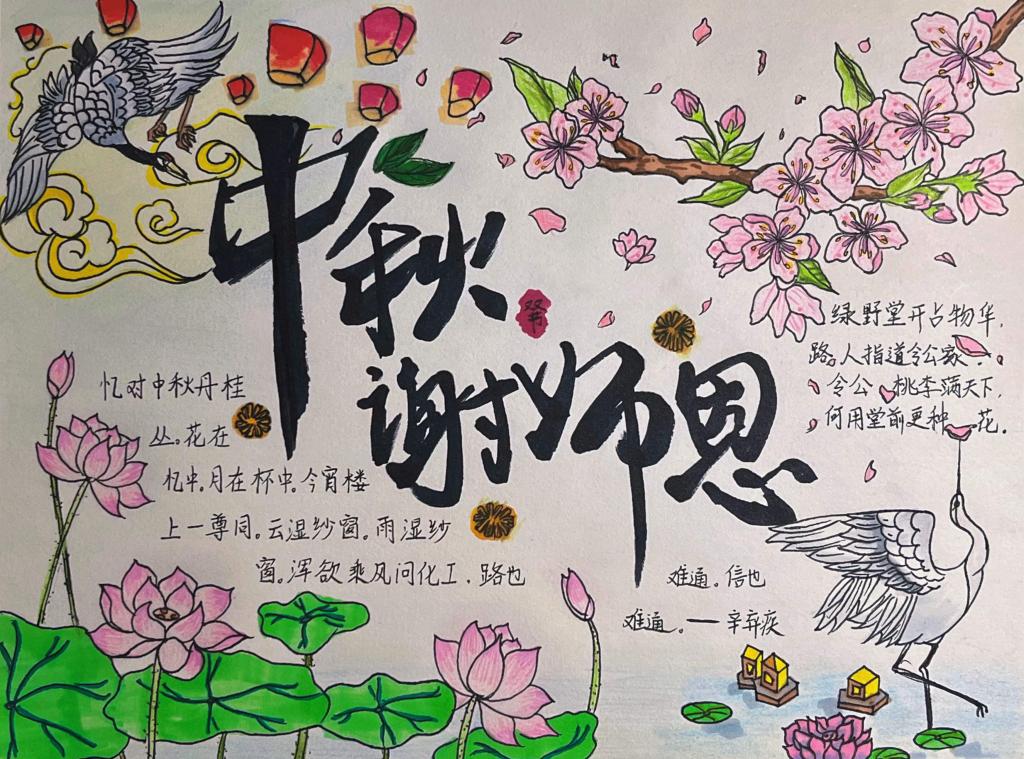 中秋
谢师恩
双节
绿野堂开占物华,
路人指道令公家.
令公桃李满天下,
何用堂前更种花.
忆对中秋丹桂
丛。花在
杯中。月在杯中。今宵楼
上一尊同。云湿纱窗。雨湿纱
窗。浑欲乘风问化工.路也
难通。信也
难通。一辛弃疾